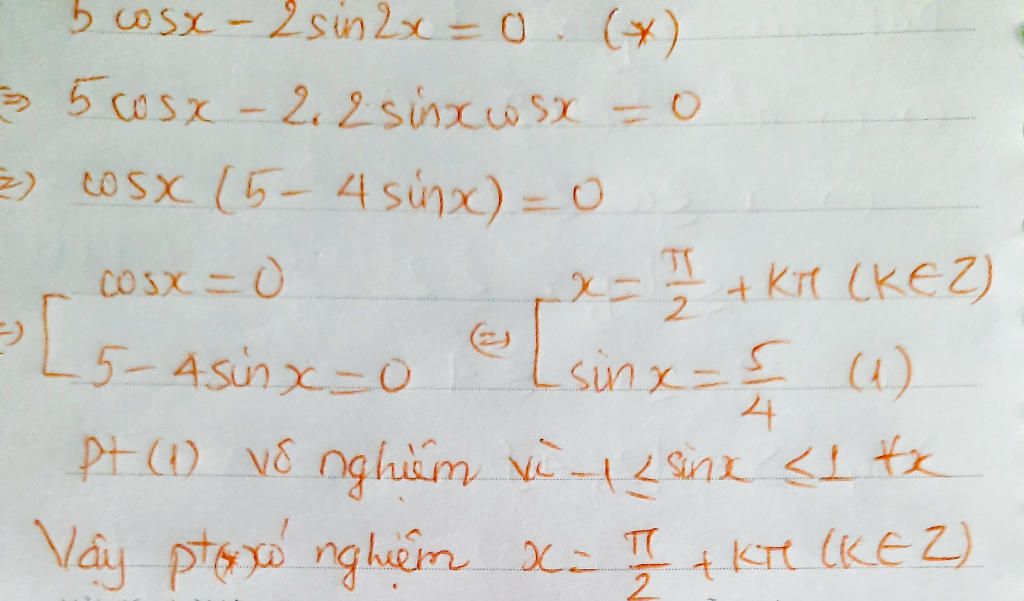 5 cosx - 2 sin2x = 0. (*)
⇔ 5 cosx - 2. 2 sinxcosx = 0
⇔ cosx (5 - 4 sinx) = 0
⇔ [ cosx = 0 ⇔ [ x = π/2 + kπ (k ∈ Z)
5 - 4 sin x = 0 sin x = 5/4 (1)
pt (1) vô nghiệm vì -1 ≤ sinx ≤ 1 ∀x
Vậy pt(*) có nghiệm x = π/2 + kπ (k ∈ Z)